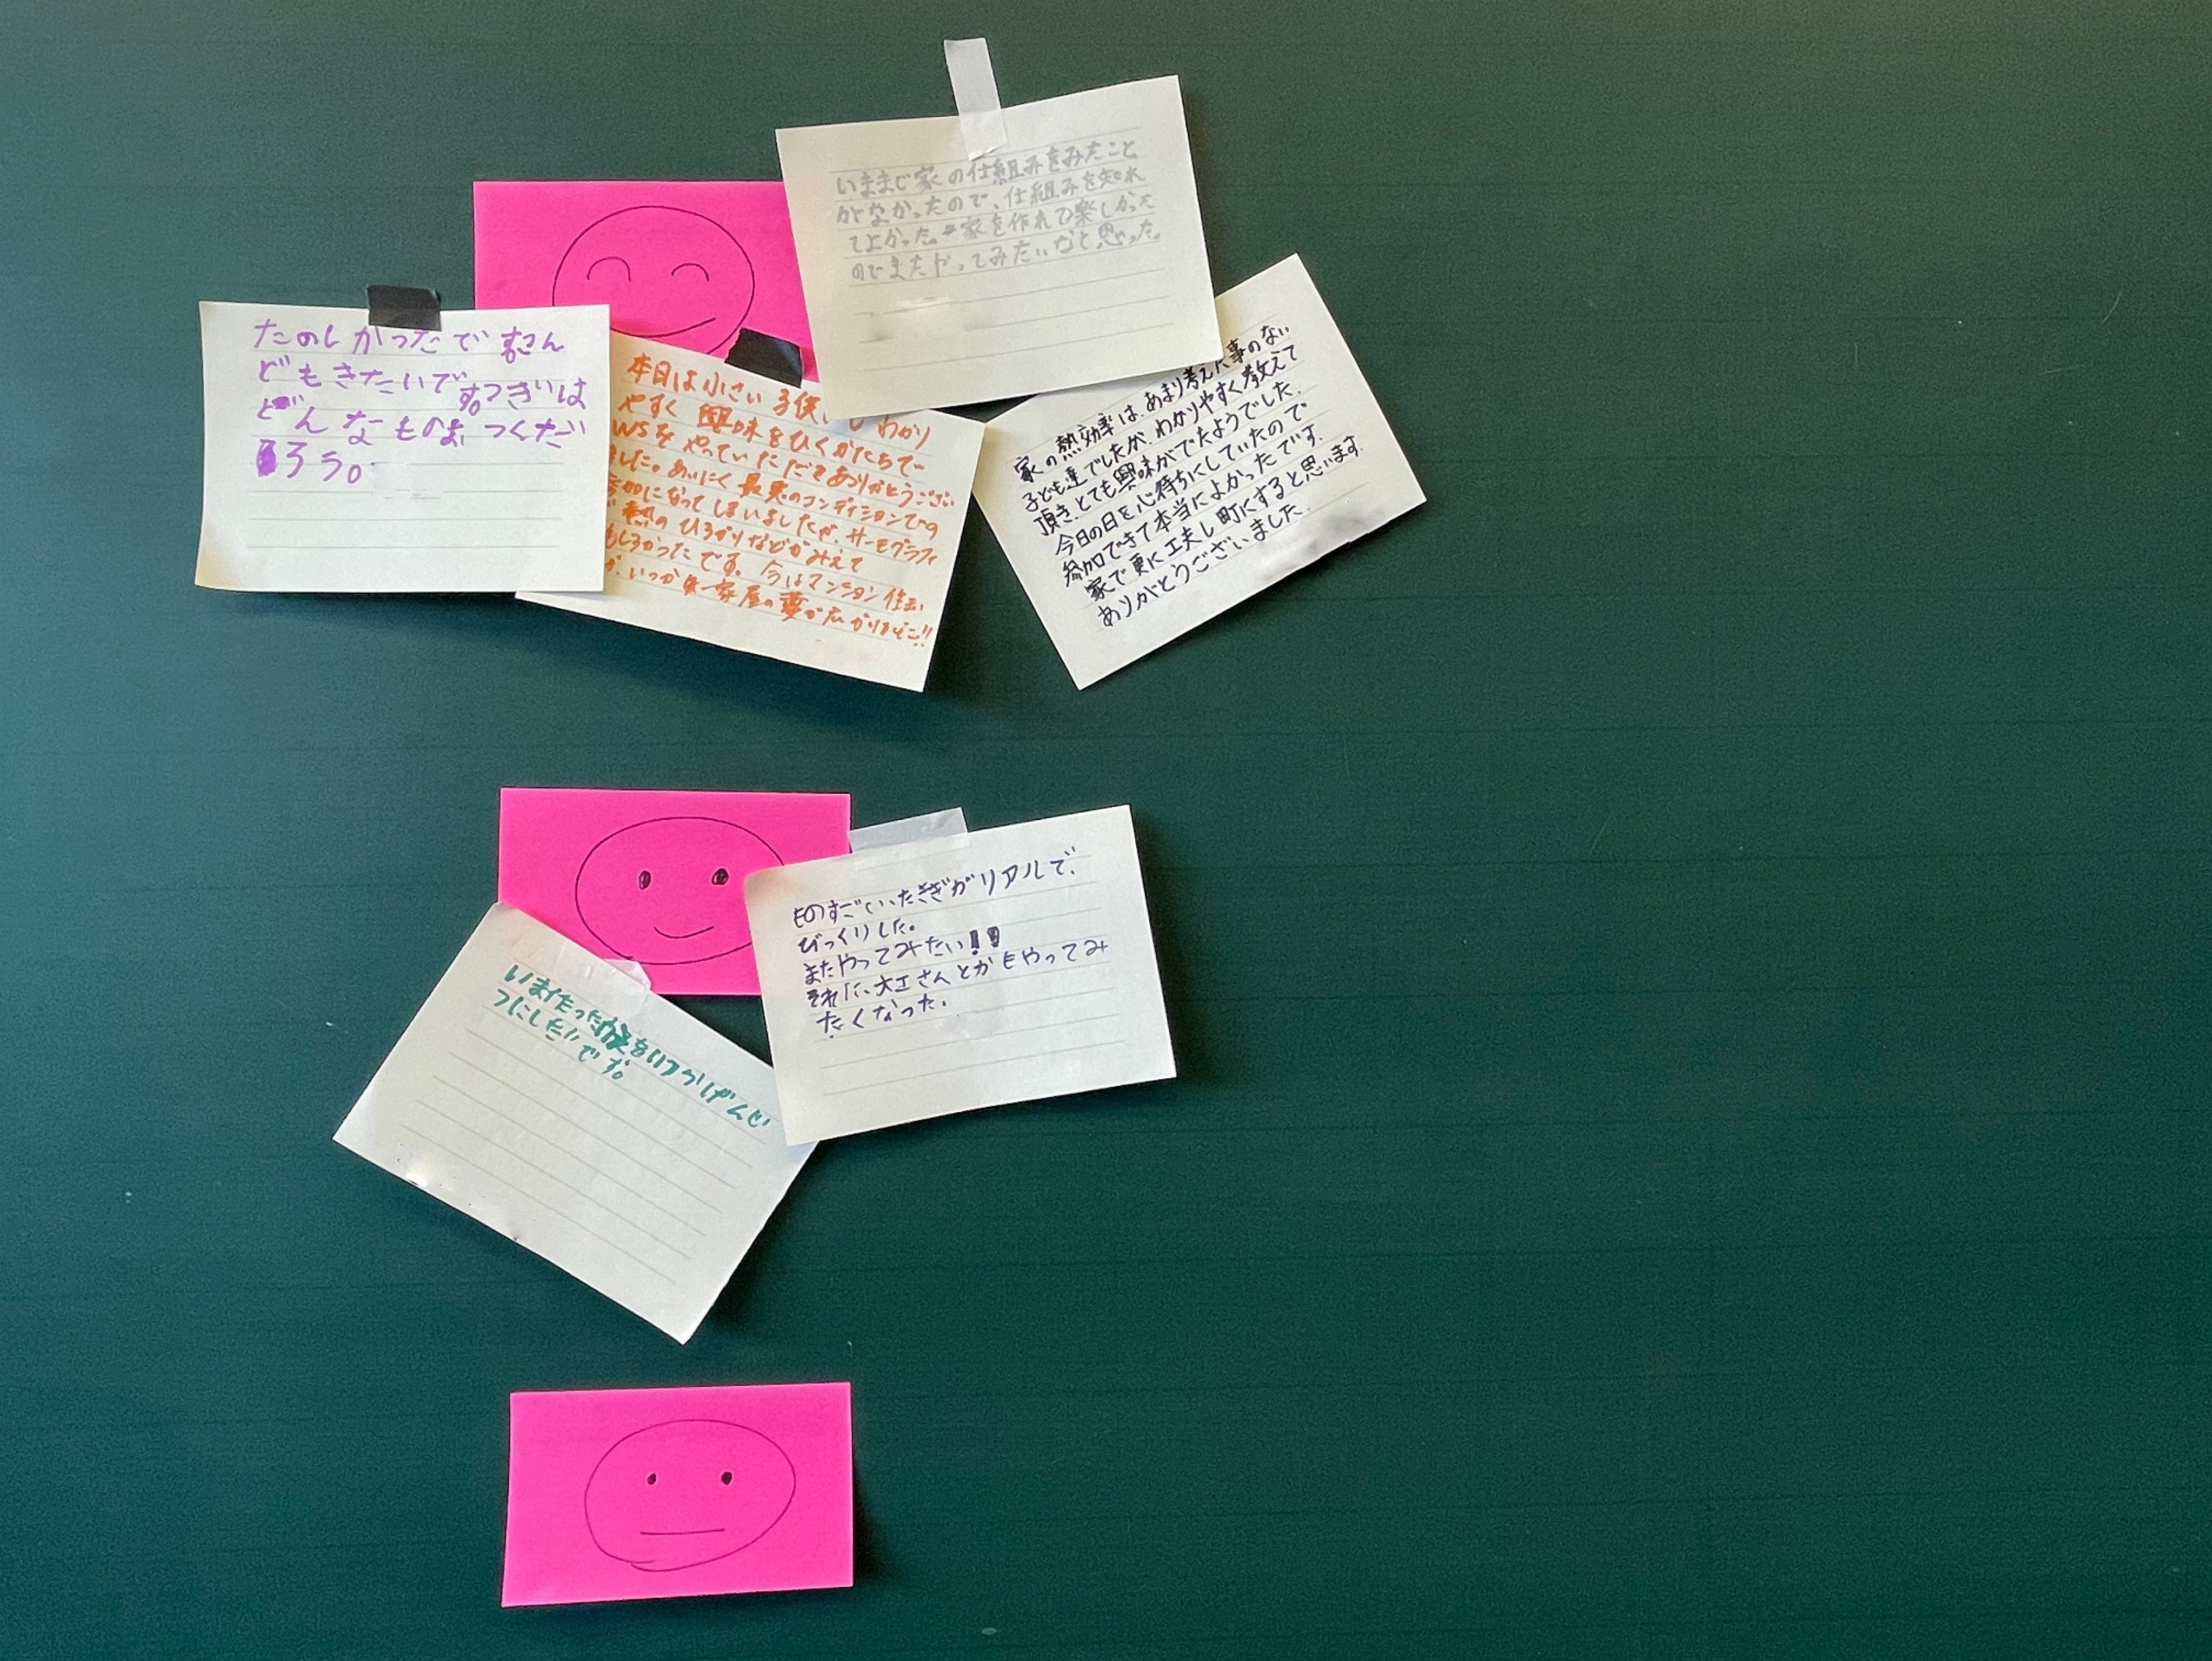 いままで家の仕組みをみたこと
がなかったので、仕組みを知れ
てよかった。家を作れて楽しかった
のでまたやってみたいなと思った。
たのしかったです。こん
どもきたいです。つぎは
どんなものお つくだ
ろう。
本日は小さい子供 わかり
やすく 興味をひくかたちで
WSをやっていただきありがとうござい
した。あいにく最悪のコンディションでの
参加になってしまいましたが、サーモグラフィ
熱のひろがりなどがみえて
もしろかったです。今はマンション住まい
が、いつか 家屋の夢がひろがりました!!
家の熱効率は、あまり考えた事のない
子ども達でしたが、わかりやすく教えて
頂き、とても興味がでたようでした。
今日の日を心待ちにしていたので
参加できて本当によかったです。
家で更に工夫し町にすると思います。
ありがとうございました。
ものすごくいたきがリアルで、
びっくりした。
またやってみたい!!
それに、大工さんとかもやってみ
たくなった。
いまたった をいつかげんじ
つにしたいです。